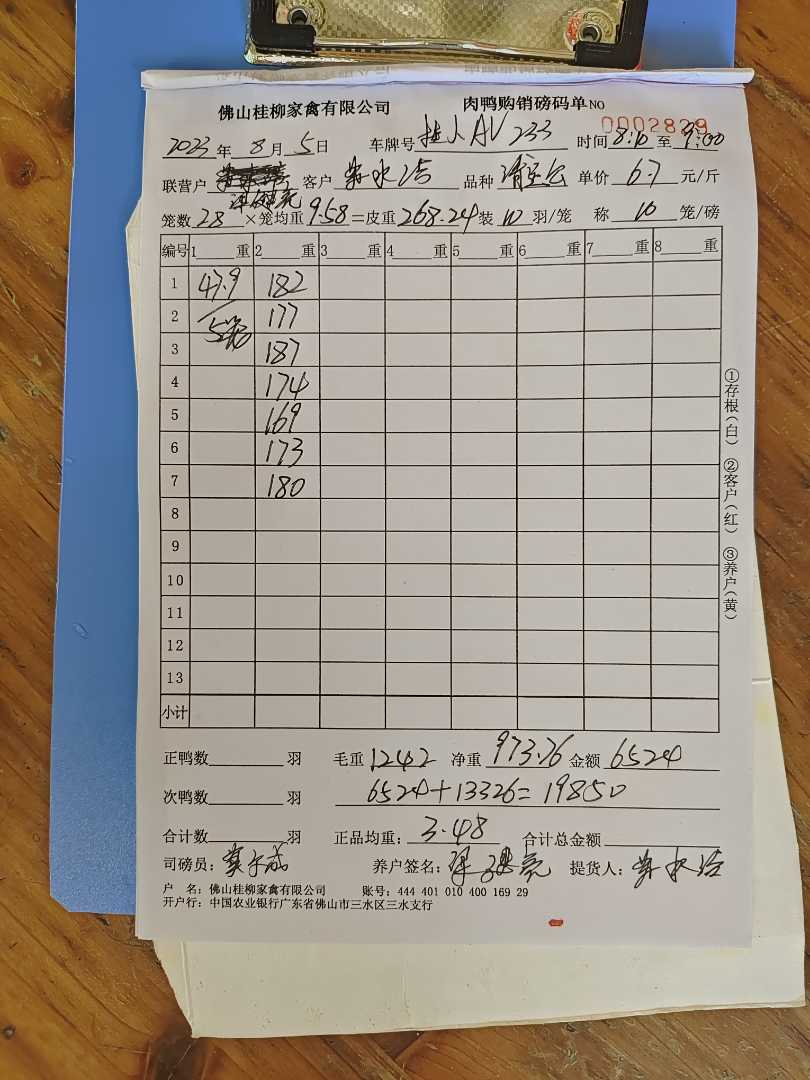 佛山桂柳家禽有限公司 肉鸭购销磅码单NO 0002829
2023年 8月 5日 车牌号 AV233 时间 8:10 至 9:00
联营户 客户 品种 单价 6.7 元/斤
笼数 28 ×笼均重 9.58 =皮重 268.24 装 10 羽/笼 称 10 笼/磅
编号 1 重 2 重 3 重 4 重 5 重 6 重 7 重 8 重
1 47.9 182
2 177
3 187
4 174
5 169
6 173
7 180
8
9
10
11
12
13
小计
①存根(白) ②客户(红) ③养户(黄)
正鸭数 羽 毛重 1242 净重 973.76 金额 6524
次鸭数 羽 6524+13326=19850
合计数 羽 正品均重: 3.48 合计总金额
司磅员: 养户签名: 提货人:
户 名: 佛山桂柳家禽有限公司 账号: 444 401 010 400 169 29
开户行: 中国农业银行广东省佛山市三水区三水支行